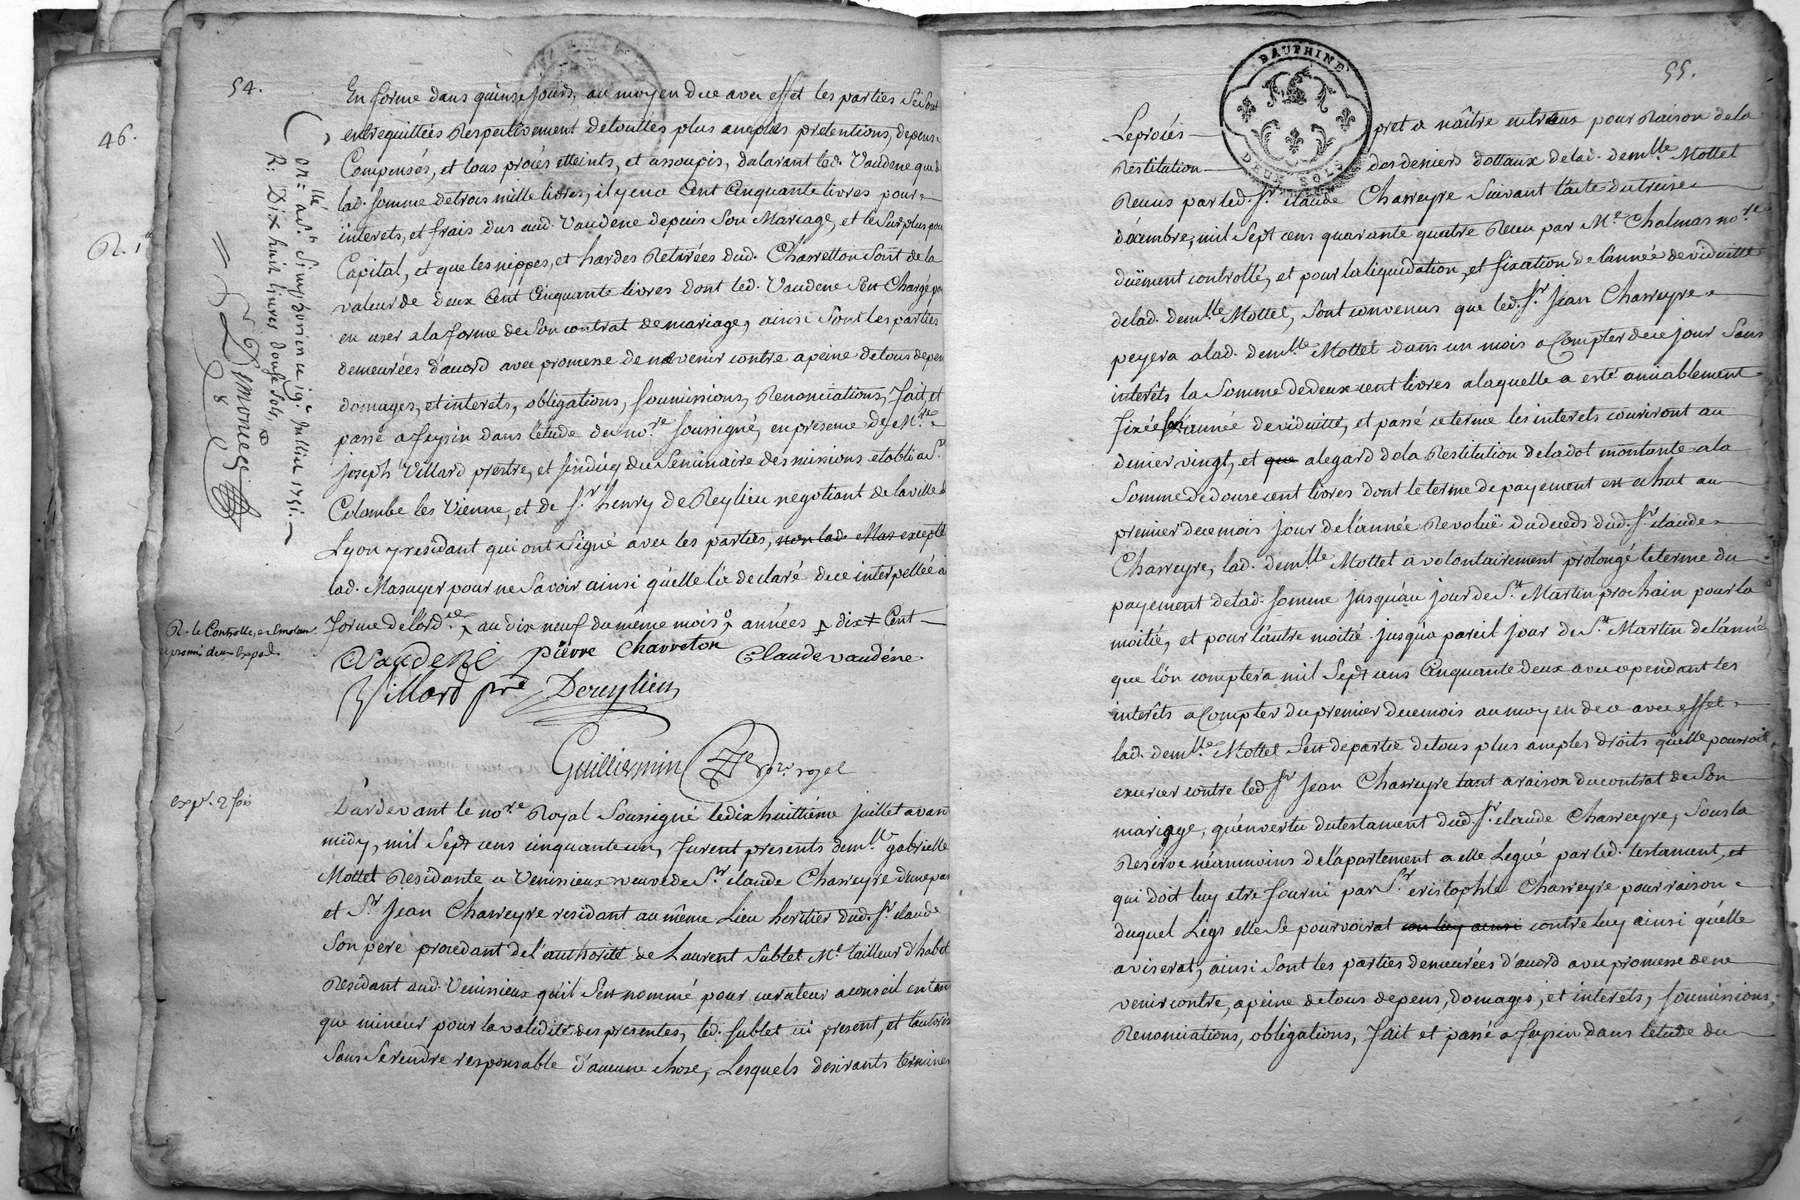 46.
R. 1
54.
En forme dans quinze jours, au moyen de ce avec effet les parties se sont
entrequittées Respectivement de touttes plus amples pretentions, depens
Compensés, et tous procés etteints, et assoupis, dalarant led. Vaudene que d
lad. somme de trois mille livres, il y en a Cent Cinquante livres pour
interets, et frais dus aud. Vaudene depuis son Mariage, et le surplus pou
Capital, et que les nippes, et hardes Retirées dud. Charretton sont de la
valeur de deux Cent Cinquante livres dont led. Vaudene s'en Charge po
en user a la forme de son contrat de mariage, ainsi sont les parties
demeurées d'acord avec promesse de ne venir contre a peine de tous depen
domages, et interets, obligations, soumissions, Renonciations, fait, et
passé a feysin dans l'etude du no.re soussigné, en presence de M.re
joseph Villard prestre, et sindicq du Seminaire des missions etabli a S.te
Colombe les Vienne, et de s.r henry de Reylieu negotiant de la ville de
Lyon y residant qui ont signé avec les parties, non lad. Mas excepté
lad. Masuyer pour ne savoir ainsi qu'elle l'a declaré de ce interpellée a
forme de l'ord.ce au dix neuf du même mois années dix Cent
Vaudene pierre Charreton Claude vaudéne
Villard pre Dereylieu
Guilliermin no.re royal
R. le Controlle, et Emolum.
Con.llé a S.t Simphorien ce 19.e Juillet 1751.
R: Dix huit livres douze sols
Simonet
exp.é 2 fois
Pardevant le no.re Royal Soussigné le dix huittième juillet avant
midy, mil sept cens cinquante un, furent presents dem.lle gabrielle
Mottet Residante a Venissieux veuve de S.r claude Charreyre d'une par
et S.r Jean Charreyre residant au même Lieu heritier dud. S.r claude
Son pere procedant de l'authorité de Laurent Sublet M.e tailleur d'habit
Residant aud. Venissieux qu'il s'en nommé pour curateur a conseil en tan
que mineur pour la validité des presentes, led. Sublet ici present, et l'autoris
sans se rendre responsable d'aucune chose, Lesquels desirants terminer
55.
DAUPHINE
DEUX SOLS
Le procés pret a naître entr'eux pour Raison de la
Restitution des deniers dottaux de lad. dem.lle Mottet
Reçus par led. S.r claude Charreyre Suivant l'acte du treize
décembre, mil sept cens quarante quatre Reçu par M.e Chalmas no.re
duëment controllé, et pour la liquidation, et fixation de l'année de viduitté
de lad. dem.lle Mottet, sont convenus que led. S.r Jean Charreyre
peyera a lad. dem.lle Mottet dans un mois a Compter de ce jour sans
interêts la somme de deux cent livres a laquelle a esté amiablement
fixée son année de viduitté, et passé ce terme les interets couriront au
denier vingt, et que a l'egard de la Restitution de la dot montante a la
somme de douze cent livres dont le terme de payement est echut au
premier de ce mois jour de l'année Revoluë du deces dud. S.r claude
Charreyre, lad. dem.lle Mottet a volontairement prolongé le terme du
payement de lad. somme jusqu'au jour de S.t Martin prochain pour la
moitié, et pour l'autre moitié jusqu'a pareil jour de S.t Martin de l'année
que l'on comptera mil Sept cens Cinquante deux avec cependant les
interêts a Compter du premier de ce mois au moyen de ce avec effet
lad. dem.lle Mottet s'en departie de tous plus amples droits qu'elle pourroit
exercer contre led. S.r Jean Charreyre tant a raison du contrat de Son
mariage, qu'en vertu du testament dud. S.r claude Charreyre, sous la
Reserve néanmoins de l'apartement a elle Legué par led. testament, et
qui doit luy etre fourni par S.r cristophle Charreyre pour raison
duquel Legs elle se pourvoirat con luy ainsi contre luy ainsi qu'elle
aviserat, ainsi sont les parties demeurées d'acord avec promesse de ne
venir contre, a peine de tous depens, domages, et interets, soumissions,
Renonciations, obligations, fait et passé a feysin dans l'etude du